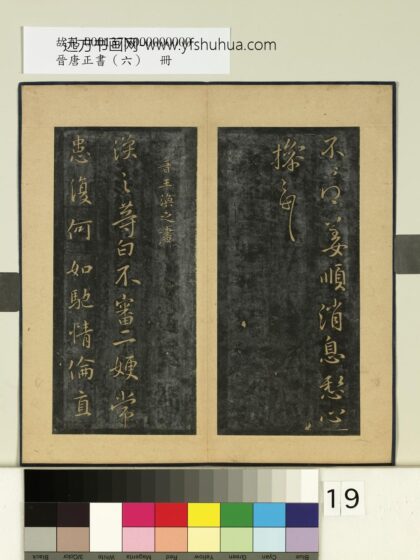 远方书画网 www.yfshuhua.com
晉唐正書（六）　冊
不姜順消息愁心
晉王渙之書
渙之等白不審二嫂常
患復何如馳情倫直
19
Black
3/Color
White
Magenta
Red
Yellow
Green
Cyan
Blue